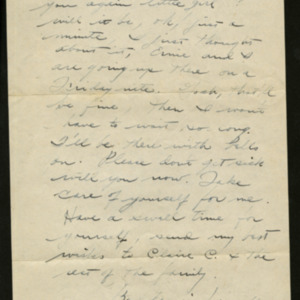 you again little girl?
wish to be, oh, just a
minute I just thought
about it, Ernie and I
are going up there on a
Friday nite. Gosh, that'll
be fine, then I won't
have to wait so long.
I'll be there with bells
on. Please don't get sick
will you now. Take
care of yourself for me.
Have a swell time for
yourself, send my best
wishes to Claire C. & the
rest of the family.